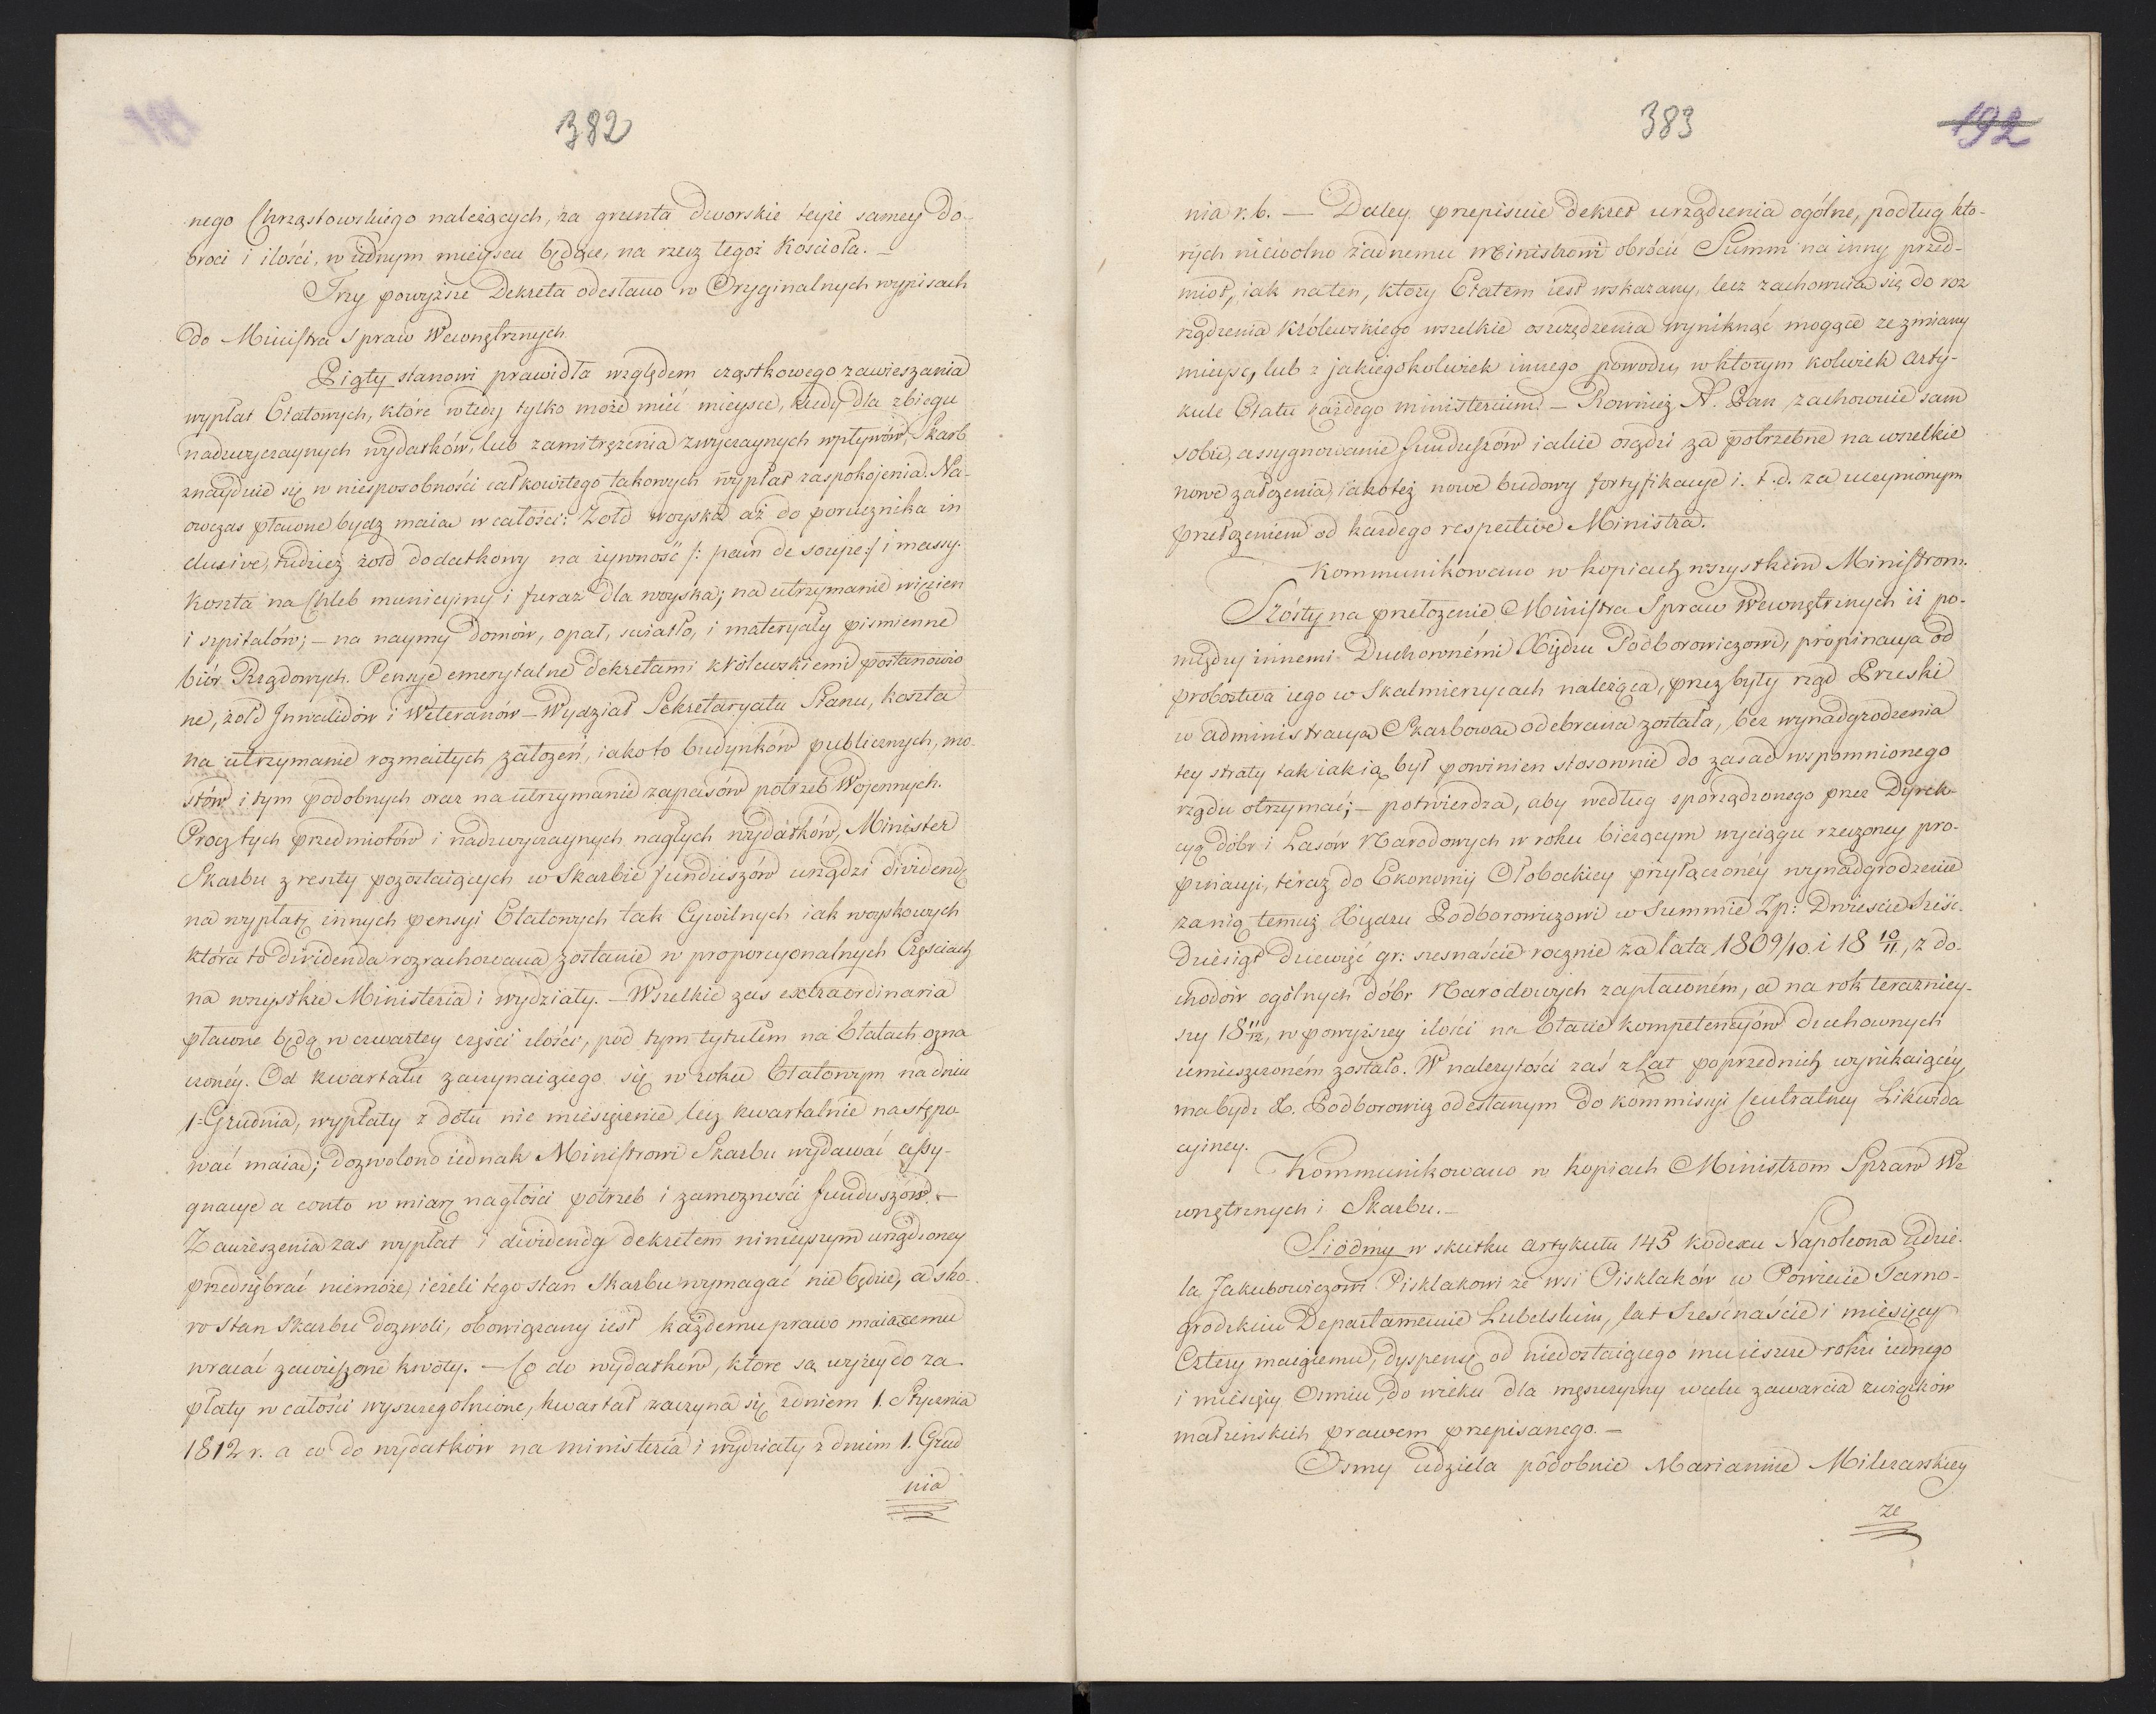 382
nego Chrząstowskiego należących, za grunta dworskie teyże samey do-
broci i ilości, w iednym mieyscu będące, na rzecz tegoż Kościoła. —
Trzy powyższe Dekreta odesłano w Oryginalnych wypisach
do Ministra Spraw Wewnętrznych
Piąty stanowi prawidła względem cząstkowego zawieszania
wypłat Etatowych, które wtedy tylko może mieć mieysce, kiedy dla zbiegu
nadzwyczaynych wydatków, lub zamitrężenia zwyczaynych wpływów, Skarb
znaydzie się w niesposobności całkowitego takowych wypłat zaspokojenia. Na-
owczas płacone bydz maią w całości: Żołd woyska aż do porucznika in
clusive, tudzież żołd dodatkowy na żywność /: pain de soupe :/ i massy.
Koszta na Chleb municyiny i furaż dla woyska; na utrzymanie więzien
i szpitalów; — na naymy Domów, opał, światło, i materyały pismienne
biór Rządowych. Pensye emerytalne dekretami królewskiemi postanowio
ne, żołd Inwalidów i Weteranów — Wydział Sekretaryatu Stanu, koszta
na utrzymanie rozmaitych założeń, iakoto budynków publicznych, mo-
stów i tym podobnych oraz na utrzymanie zapasów potrzeb Wojennych.
Procz tych przedmiotów i nadzwyczaynych nagłych wydatków, Minister
Skarbu z reszty pozostaiących w Skarbie funduszów urządzi dividendę
na wypłatę innych pensyi Etatowych tak Cywilnych iak woyskowych
która to dividenda rozrachowana zostanie w proporcyonalnych Częsciach
na wszystkie Ministeria i wydziały. — Wszelkie zas extraordinaria
płacone będą w czwartey części ilości, pod tym tytułem na Etatach ozna
czonéy. Od kwartału zaczynaiącego się w roku Etatowym na dniu
1= Grudnia, wypłaty z dołu nie miesięcznie lecz kwartalnie następo
wać maią; dozwolono iednak Ministrowi Skarbu wydawać assy-
gnacye a conto w miarę nagłości potrzeb i zamożności funduszów. —
Zawieszenia zas wypłat i dividendy dekretem ninieyszym urządzoney
przedsiębrać niemoże, ieżeli tego stan Skarbu wymagać nie będzie, a sko-
ro stan Skarbu dozwoli, obowiązany iest każdemu prawo maiącemu
wracać zawieszone kwoty. — Co do wydatków, które są wyżey do za-
płaty w całości wyszczegolnione, kwartał zaczyna się zdniem 1. Stycznia
1812 r. a co do wydatków na ministeria i wydziały z dniem 1. Grud
nia
383
192
nia r. b. — Daley przepisuie dekret urządzenia ogólne, podług któ-
rych niewolno żadnemu Ministrowi obrócić Summ na inny przed-
miot, iak na ten, ktory Etatem iest wskazany, lecz zachowuią się do roz
rządzenia Królewskiego wszelkie oszczędzenia wyniknąć mogące ze zmiany
mieysc, lub z jakiegokolwiek innego powodu, w ktorym kolwiek arty-
kule Etatu każdego ministerium. — Rownież N. Pan zachowuie sam
sobie, assygnowanie funduszów iakie osądzi za potrzebne na wszelkie
nowe założenia, iakoteż nowe budowy fortyfikacye i. t. d. za uczynionym
przełożeniem od każdego respective Ministra.
Kommunikowano w kopiach wszystkim Ministrom.
Szósty na przełożenie Ministra Spraw Wewnętrznych iż po-
między innemi Duchownémi Xiędzu Podborowiczowi, propinacya od
probostwa iego w Skalmierzycach należąca, przez były rząd Pruski
w administracyą Skarbową odebrana została, bez wynadgrodzenia
tey straty tak iak ią był powinien stosownie do zasad wspomnionego
rządu otrzymać; — potwierdza, aby według sporządzonego przez Dyrek-
cyą dóbr i Lasów Narodowych w roku bieżącym wyciągu rzeczoney pro-
pinacyi, teraz do Ekonomij Ołobockiey przyłączonéy wynadgrodzenie
za nią temuż Xiędzu Podborowiczowi w Summie Zp: Dwieście Sześć-
dziesiąt dziewięć gr: szesnaście rocznie za lata 1809/10. i 18 10/11, z do-
chodów ogólnych dóbr Narodowych zapłaconém, a na rok teraźniey-
szy 18 11/12, w powyższey ilości na Etacie kompetencyów duchownych
umieszczoném zostało. W należytości zaś z Lat poprzednich wynikaiącéy,
ma bydź X. Podborowicz odesłanym do kommissyi Centralney Likwida
cyiney.
Kommunikowano w kopiach Ministrom Spraw We
wnętrznych i Skarbu. —
Siódmy w skutku artykułu 145 kodexu Napoleona udzie-
la Jakubowiczowi Pisklakowi ze wsi Pisklaków w Powiecie Tarno-
grodzkim Departamencie Lubelskim, lat Sześćnaście i miesięcy
Cztery maiącemu, dyspensę od niedostaiącego mu ieszcze roku iednego
i miesięcy Osmiu, do wieku dla mężczyzny w celu zawarcia związków
małżeńskich prawem przepisanego. —
Osmy udziela podobnie Mariannie Milczarskiey
ze